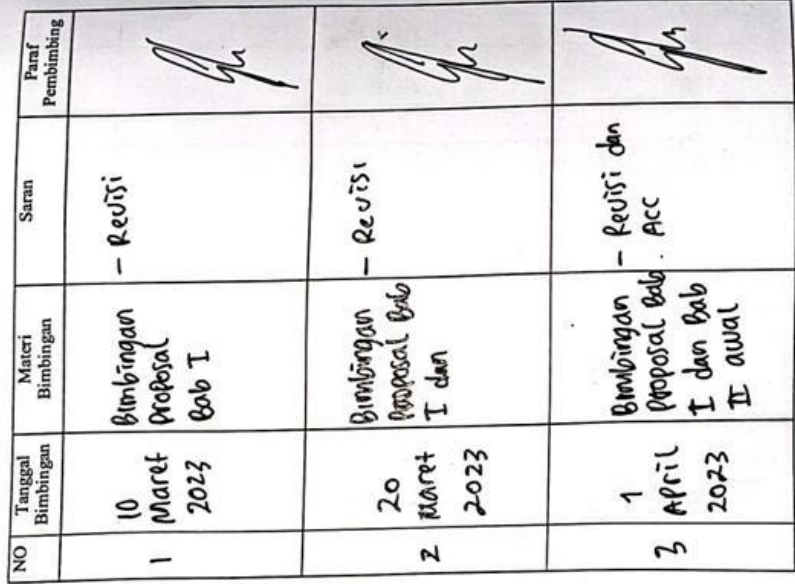 NO
Tanggal
Bimbingan
Materi
Bimbingan
Saran
Paraf
Pembimbing
1
10
Maret
2023
Bimbingan
Proposal
Bab I
- Revisi
2
20
Maret
2023
Bimbingan
Proposal Bab
I dan
- Revisi
3
1
April
2023
Bimbingan
Proposal Bab
I dan Bab
II awal
- Revisi dan
ACC